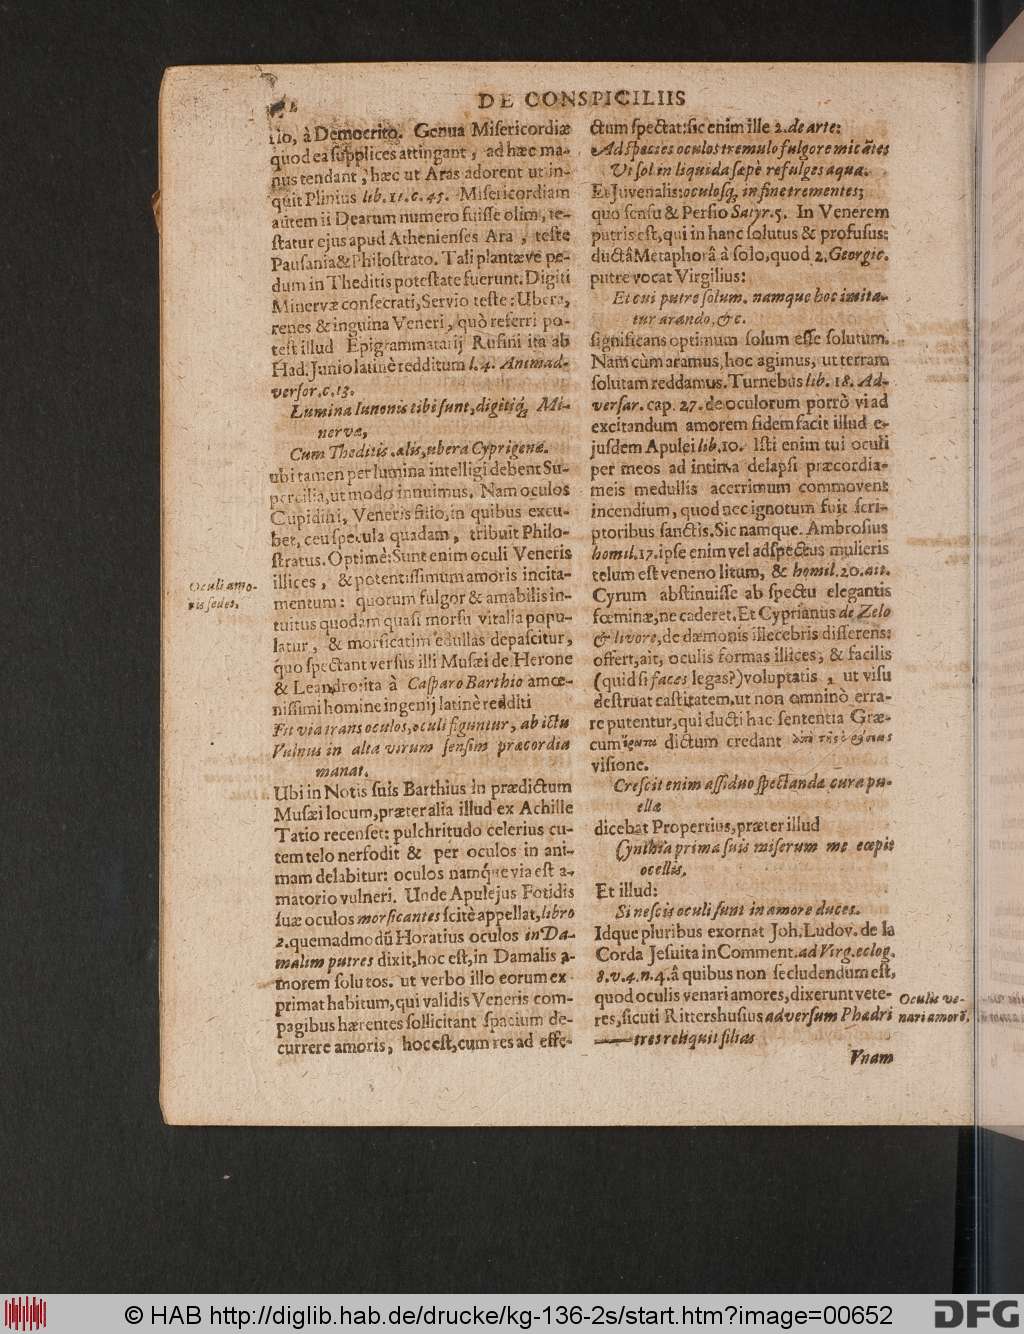 DE CONSPICILIIS
à Democrito. Genua Misericordiæ
quod ea supplices attingant, ad hæc ma-
nus tendant, hæc ut Aras adorent ut in-
quit Plinius lib. 11. c. 45. Misericordiam
autem ii Dearum numero fuisse olim, te-
statur ejus apud Athenienses Ara, teste
Pausania & Philostrato. Tali plantæve pe-
dum in Theditis potestate fuerunt. Digiti
Minervæ consecrati, Servio teste: Ubera,
renes & inguina Veneri, quò referri po-
test illud Epigrammatarij Rufini ita ab
Had. Junio latinè redditum l. 4. Animad-
versor. c. 13.
Lumina Iunonis tibi sunt, digitiq́; Mi-
nervæ,
Cum Theditis .alis, ubera Cyprigenæ.
ubi tamen per lumina intelligi debent Su-
percilia, ut modò innuimus. Nam oculos
Cupidini, Veneris filio, in quibus excu-
bet, ceu specula quadam, tribuit Philo-
stratus. Optimè: Sunt enim oculi Veneris
illices, & potentissimum amoris incita-
mentum: quorum fulgor & amabilis in-
tuitus quodam quasi morsu vitalia popu-
latur, & morsicatim edullas depascitur,
quo spectant versus illi Musæi de Herone
& Leandro: ita à Casparo Barthio amœ-
nissimi homine ingenij latinè redditi
Fit via trans oculos, oculi figuntur, ab ictu
Vulnus in alta virum sensim præcordia
manat.
Ubi in Notis suis Barthius in prædictum
Musæi locum, præter alia illud ex Achille
Tatio recenset: pulchritudo celerius cu-
tem telo nerfodit & per oculos in ani-
mam delabitur: oculos namq́ue via est a-
matorio vulneri. Unde Apulejus Fotidis
suæ oculos morsicantes scitè appellat, libro
2. quemadmodũ Horatius oculos in Da-
malim putres dixit, hoc est, in Damalis a-
morem solutos. ut verbo illo eorum ex
primat habitum, qui validis Veneris com-
pagibus hærentes sollicitant spacium de-
currere amoris, hoc est, cum res ad effe-
Oculi amo-
ris sedes.
ctum spectat: sic enim ille 2. de arte:
Adspicies oculos tremulo fulgore micãtes
Vt sol in liquida sæpè refulges aqua.
Et Juvenalis: oculosq́; in fine trementes;
quo sensu & Persio Satyr. 5. In Venerem
putris est, qui in hanc solutus & profusus:
ductâ Metaphorâ à solo, quod 2. Georgic.
putre vocat Virgilius:
Et cui putre solum. namque hoc imita-
tur arando, &c.
significans optimum solum esse solutum.
Nam cùm aramus, hoc agimus, ut terram
solutam reddamus. Turnebus lib. 18. Ad-
versar. cap. 27. de oculorum porrò vi ad
excitandum amorem fidem facit illud e-
jusdem Apulei lib. 10. Isti enim tui oculi
per meos ad intima delapsi præcordia-
meis medullis acerrimum commovent
incendium, quod nec ignotum fuit scri-
ptoribus sanctis. Sic namque. Ambrosius
homil. 17. ipse enim vel adspectus mulieris
telum est veneno litum, & homil. 20. ait.
Cyrum abstinuisse ab spectu elegantis
fœminæ, ne caderet. Et Cyprianus de Zelo
& livore, de dæmonis illecebris disserens:
offert, ait, oculis formas illices, & facilis
(quid si faces legas?) voluptatis, ut visu
destruat castitatem, ut non omninò erra-
re putentur, qui ducti hac sententia Græ-
cum dictum credant
visione.
Crescit enim assiduo spectanda cura pu-
ellæ
dicebat Propertius, præter illud
Cynthia prima suis miserum me cæpit
ocellis,
Et illud:
Si nescis oculi sunt in amore duces.
Idque pluribus exornat Joh. Ludov. de la
Corda Jesuita in Comment. ad Virg. eclog.
8. v. 4. n. 4. â quibus non secludendum est,
quod oculis venari amores, dixerunt vete-
res, sicuti Rittershusius adversum Phædri
—— tres reliquit filias
Oculis ve-
nari amorẽ.
Vnam
© HAB http://diglib.hab.de/drucke/kg-136-2s/start.htm?image=00652
DFG